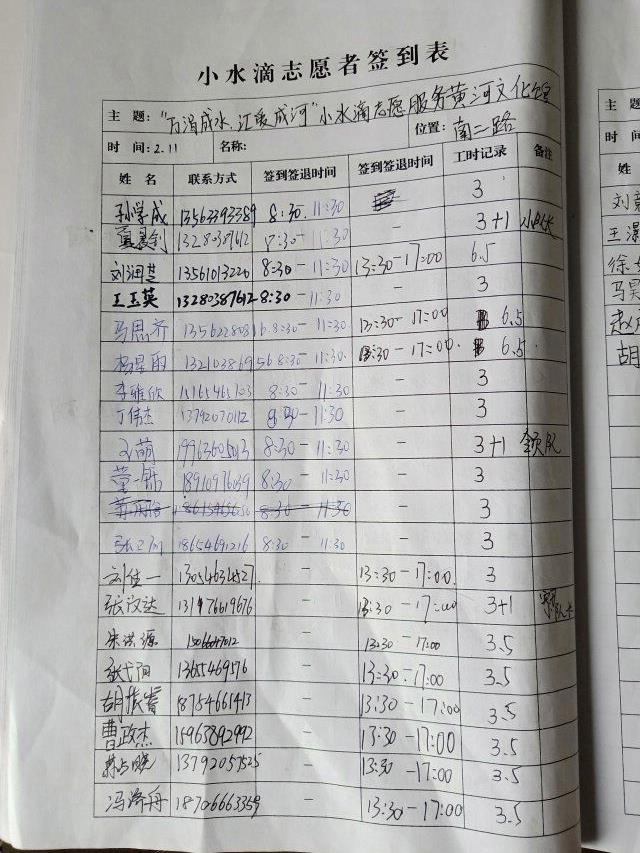 小水滴志愿者签到表
主 题: "万涓成水,汇爱成河"小水滴志愿服务黄河文化馆
时 间: 2.11 名称: 位置: 南二路
姓 名 联系方式 签到签退时间 签到签退时间 工时记录 备注
孙学成 13563393389 8:30-11:30 3
13280387612 8:30-11:30 - 3+1 小队长
刘润楚 13561013220 8:30-11:30 13:30-17:00 6.5
王玉英 13280387612 8:30-11:30 - 3
马思齐 8:30-11:30 13:30-17:00 6.5
杨星雨 13210386956 8:30-11:30 13:30-17:00 6.5
李维欣 15165465103 8:30-11:30 - 3
丁伟杰 13792070112 8:30-11:30 - 3
王萌 19963605013 8:30-11:30 - 3+1 领队
董一锦 18910976039 8:30-11:30 - 3
8:30-11:30 - 3
18654691216 8:30-11:30 - 3
刘佳一 13054634527 - 13:30-17:00 3
张汶达 131476619676 - 13:30-17:00 3+1
朱洪源 - 13:30-17:00 3.5
张弋阳 1365469576 - 13:30-17:00 3.5
胡振睿 18754661413 - 13:30-17:00 3.5
曹政杰 15963892992 - 13:30-17:00 3.5
13792057525 - 13:30-17:00 3.5
冯浠舟 18706663359 - 13:30-17:00 3.5
主 题
时 间
姓
刘
王
徐
马
赵
胡